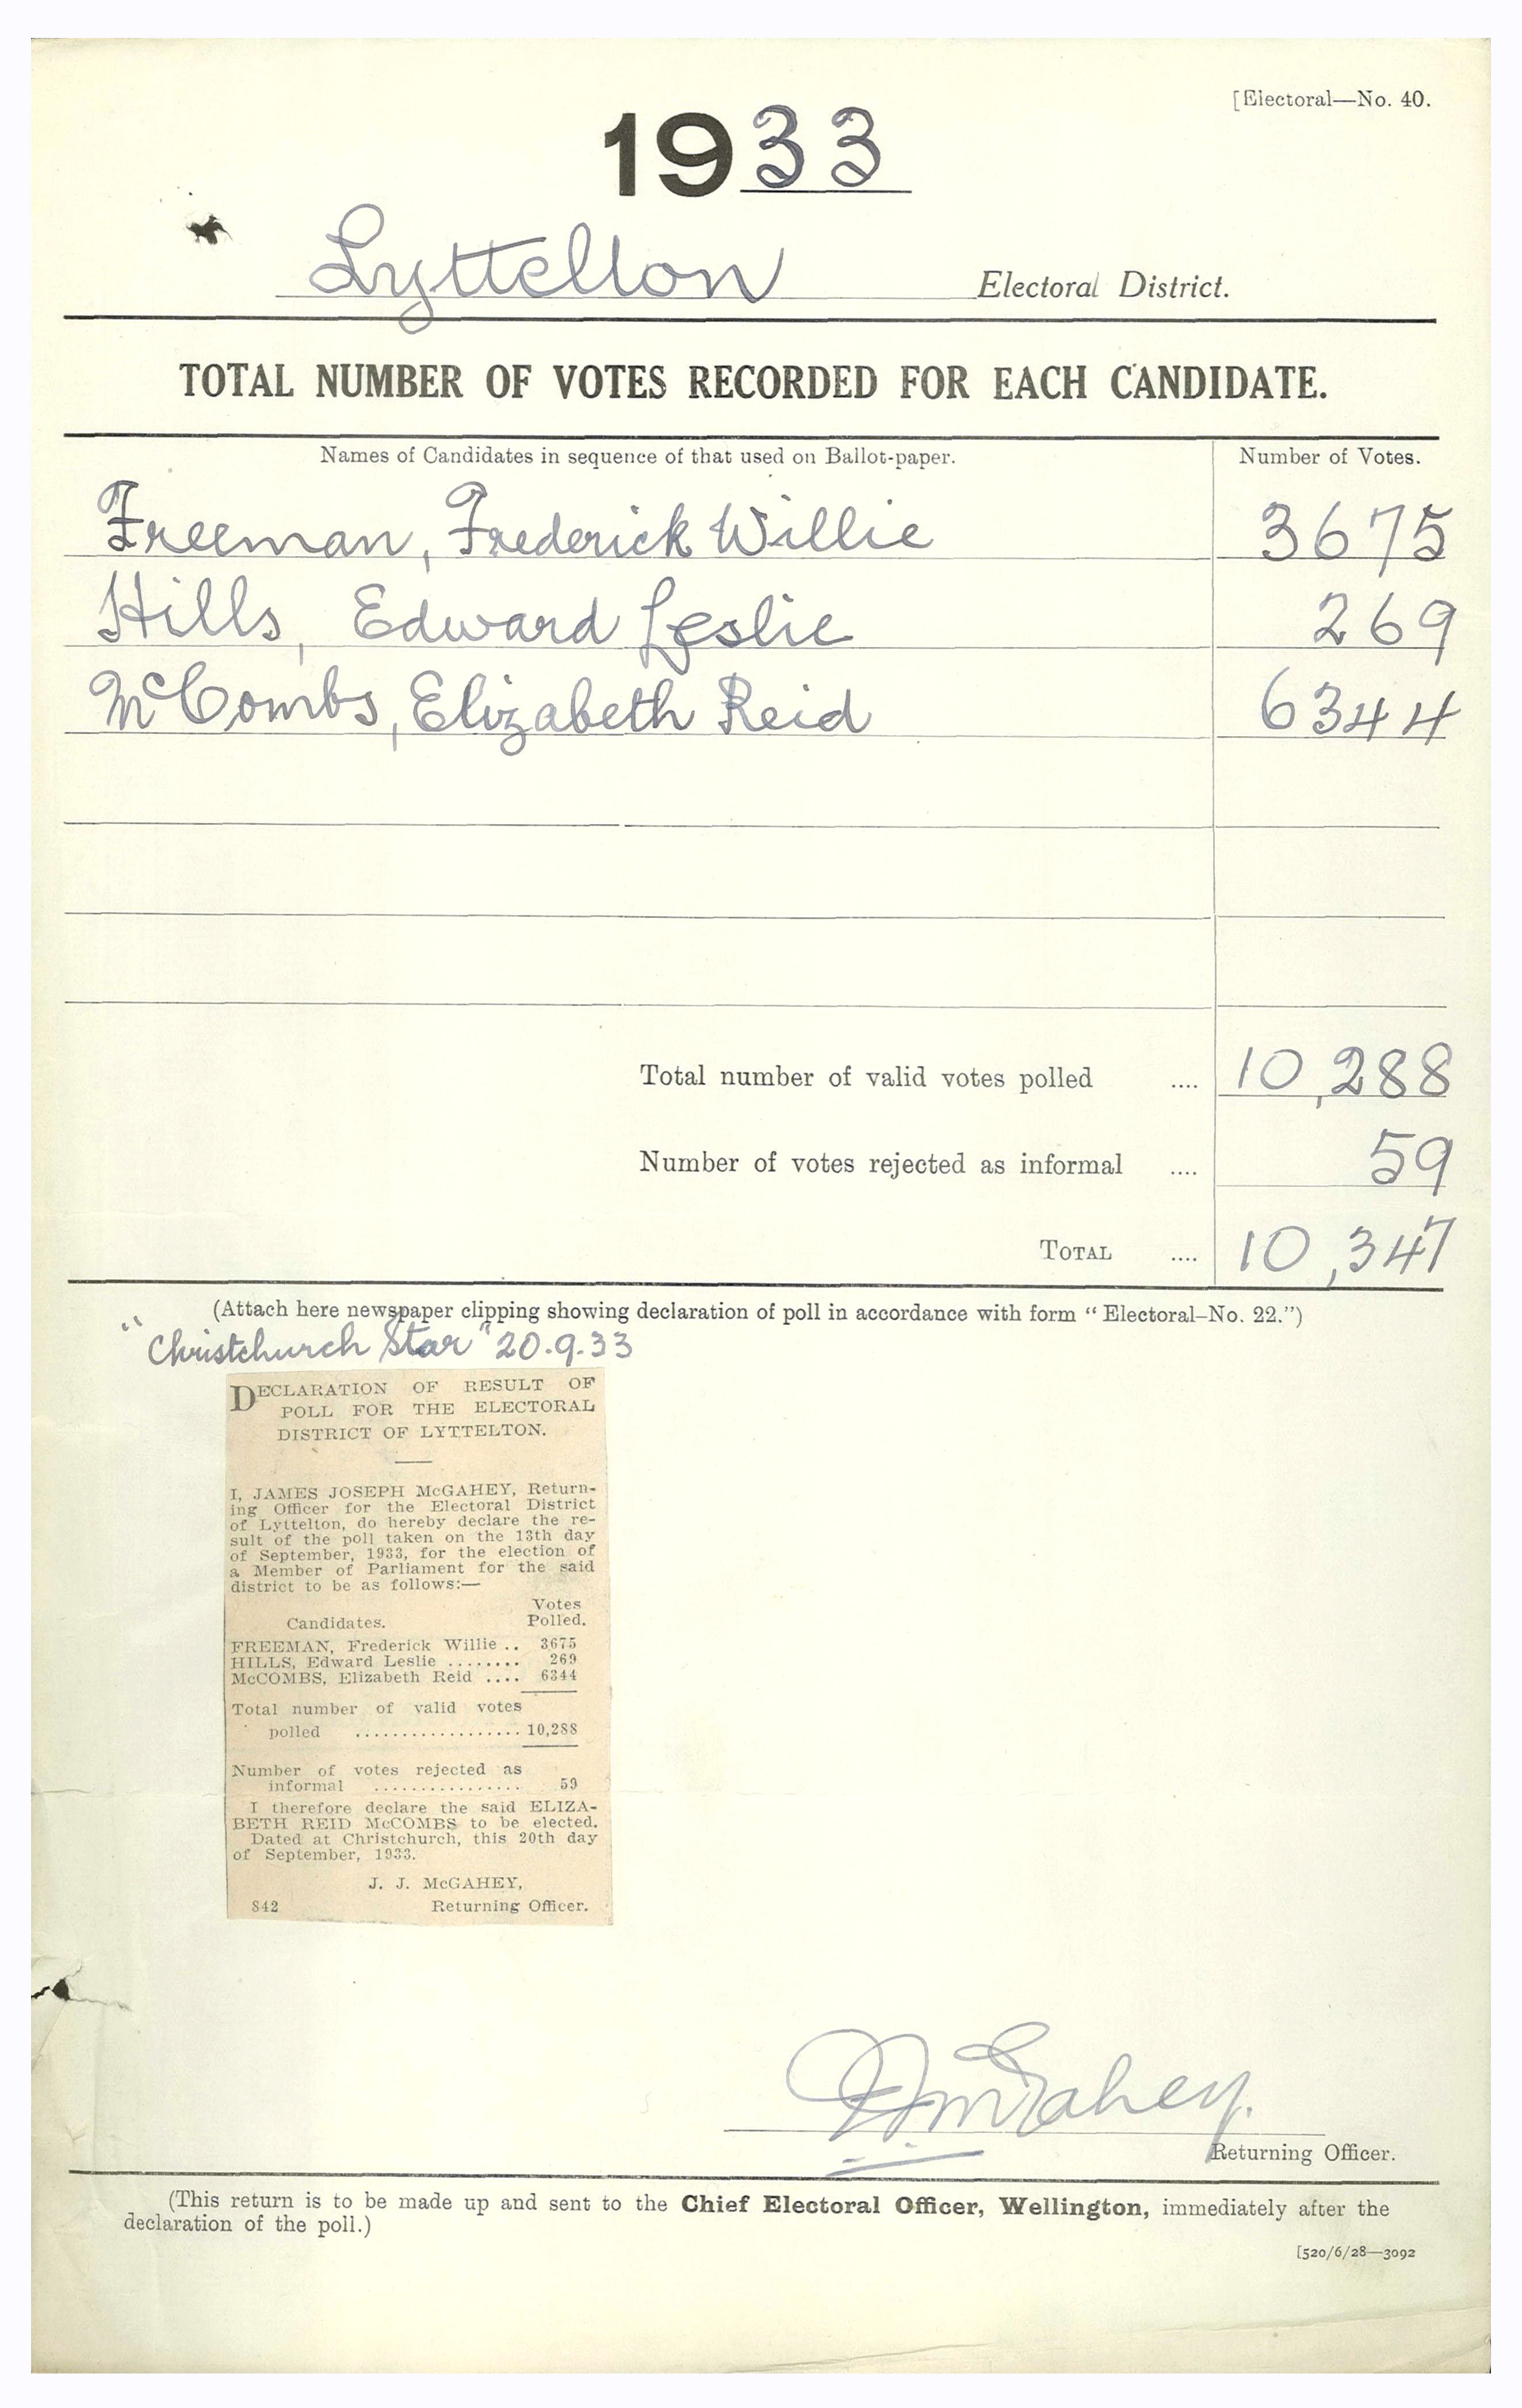 [Electoral—No. 40.
1933
Lyttelton Electoral District.
TOTAL NUMBER OF VOTES RECORDED FOR EACH CANDIDATE.
Names of Candidates in sequence of that used on Ballot-paper. Number of Votes.
Freeman, Frederick Willie 3675
Hills, Edward Leslie 269
McCombs, Elizabeth Reid 6344
Total number of valid votes polled .... 10,288
Number of votes rejected as informal .... 59
TOTAL .... 10,347
(Attach here newspaper clipping showing declaration of poll in accordance with form “ Electoral–No. 22.”)
"Christchurch Star" 20.9.33
DECLARATION OF RESULT OF
POLL FOR THE ELECTORAL
DISTRICT OF LYTTELTON.
I, JAMES JOSEPH McGAHEY, Return-
ing Officer for the Electoral District
of Lyttelton, do hereby declare the re-
sult of the poll taken on the 13th day
of September, 1933, for the election of
a Member of Parliament for the said
district to be as follows:—
Votes
Candidates. Polled.
FREEMAN, Frederick Willie .. 3675
HILLS, Edward Leslie ........ 269
McCOMBS, Elizabeth Reid .... 6344
Total number of valid votes
polled .................. 10,288
Number of votes rejected as
informal ................ 59
I therefore declare the said ELIZA-
BETH REID McCOMBS to be elected.
Dated at Christchurch, this 20th day
of September, 1933.
J. J. McGAHEY,
842 Returning Officer.
JJMcGahey.
Returning Officer.
(This return is to be made up and sent to the Chief Electoral Officer, Wellington, immediately after the
declaration of the poll.)
[520/6/28—3092